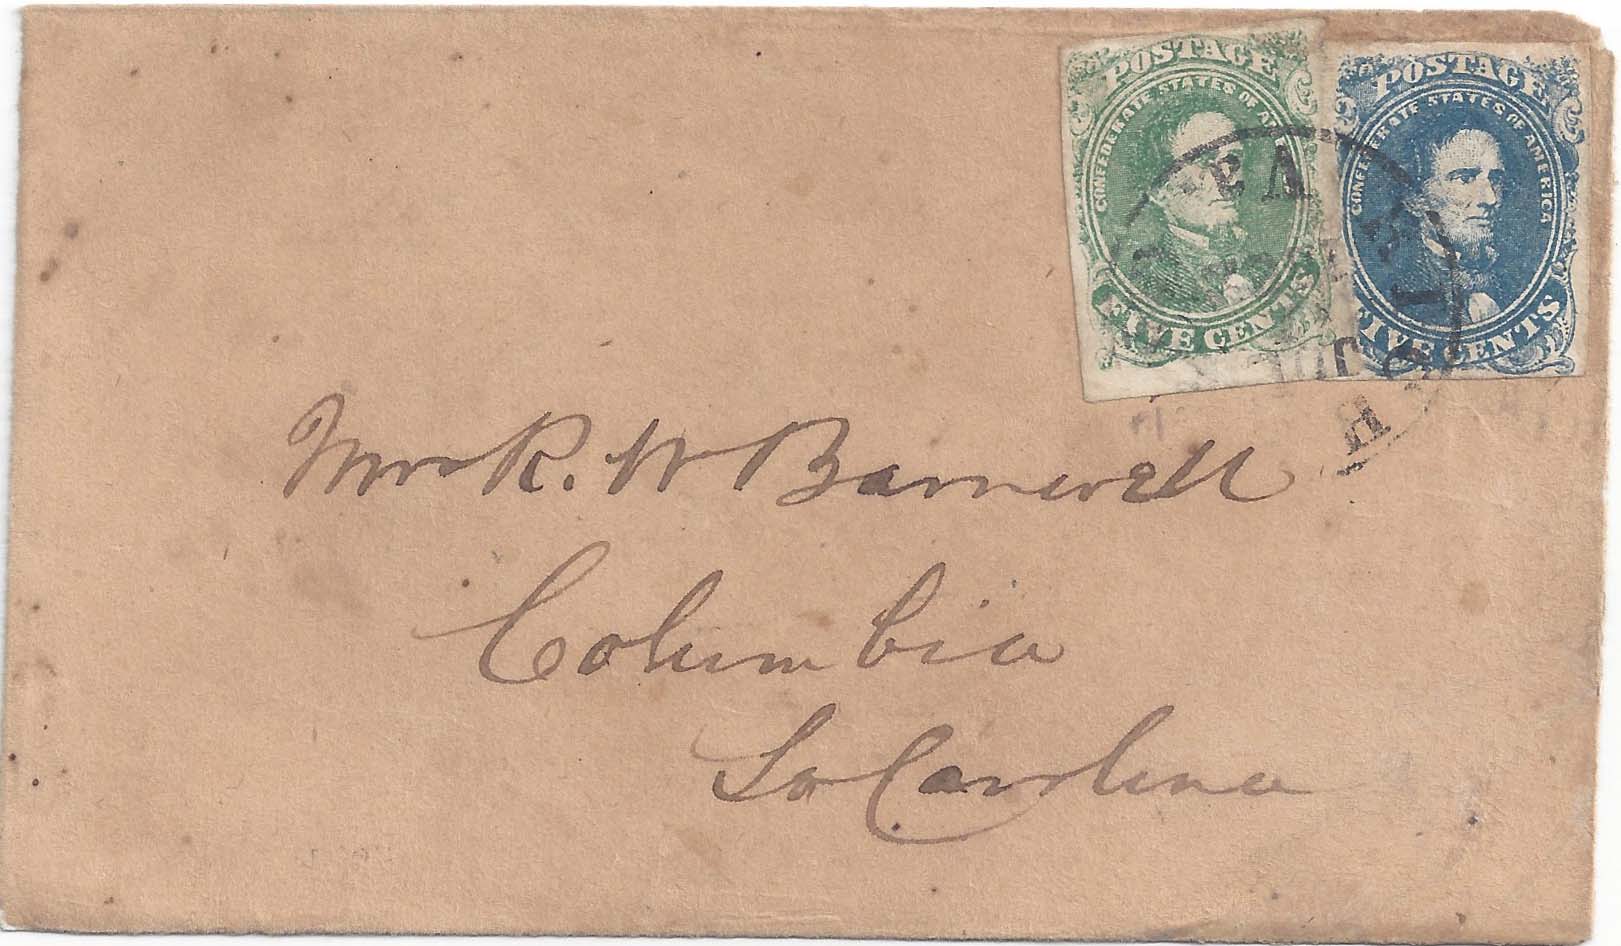 POSTAGE
CONFEDERATE STATES OF AMERICA
FIVE CENTS
POSTAGE
CONFEDERATE STATES OF AMERICA
FIVE CENTS
Mrs R. W Barnwell
Columbia
So Carolina